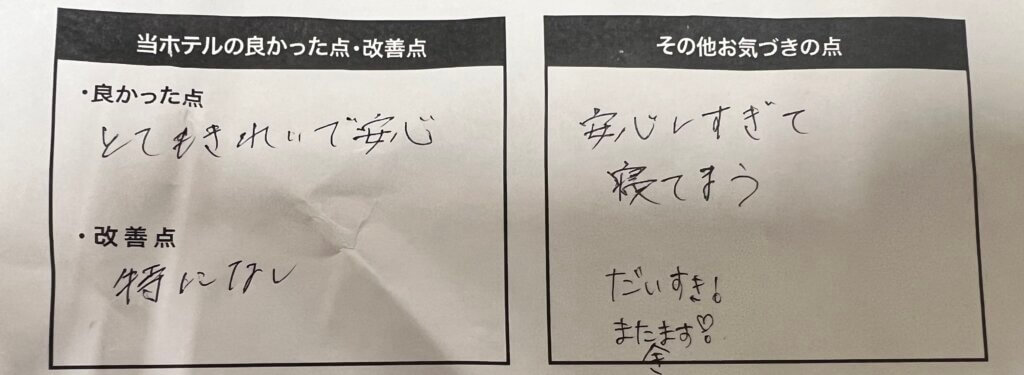 当ホテルの良かった点・改善点
・良かった点
とてもきれいで安心
・改善点
特になし
その他お気づきの点
安心しすぎて
寝てまう
だいすき!
またきます♡!